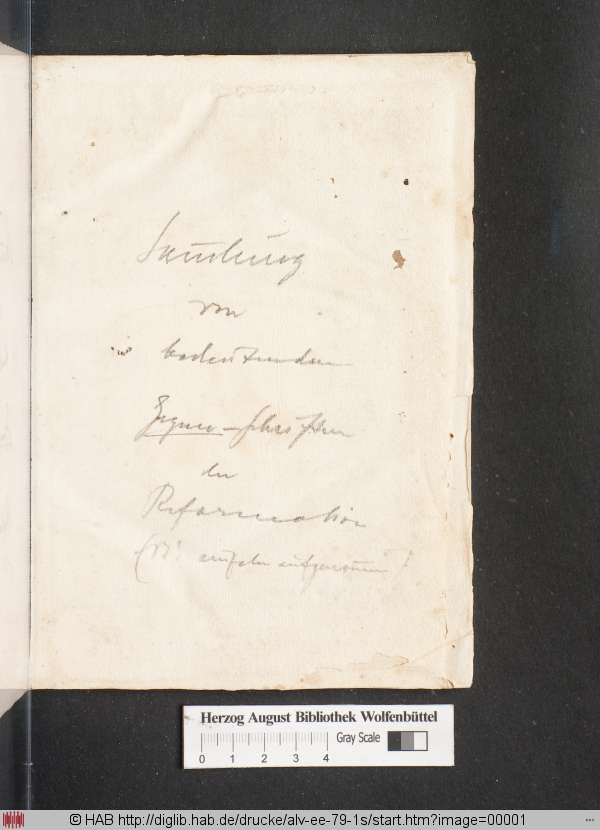 Samlung
von
bedeutenden
Gegner-schriften
der
Reformation
einzeln aufgenommen!
Herzog August Bibliothek Wolfenbüttel
Gray Scale
0 1 2 3 4
© HAB http://diglib.hab.de/drucke/alv-ee-79-1s/start.htm?image=00001